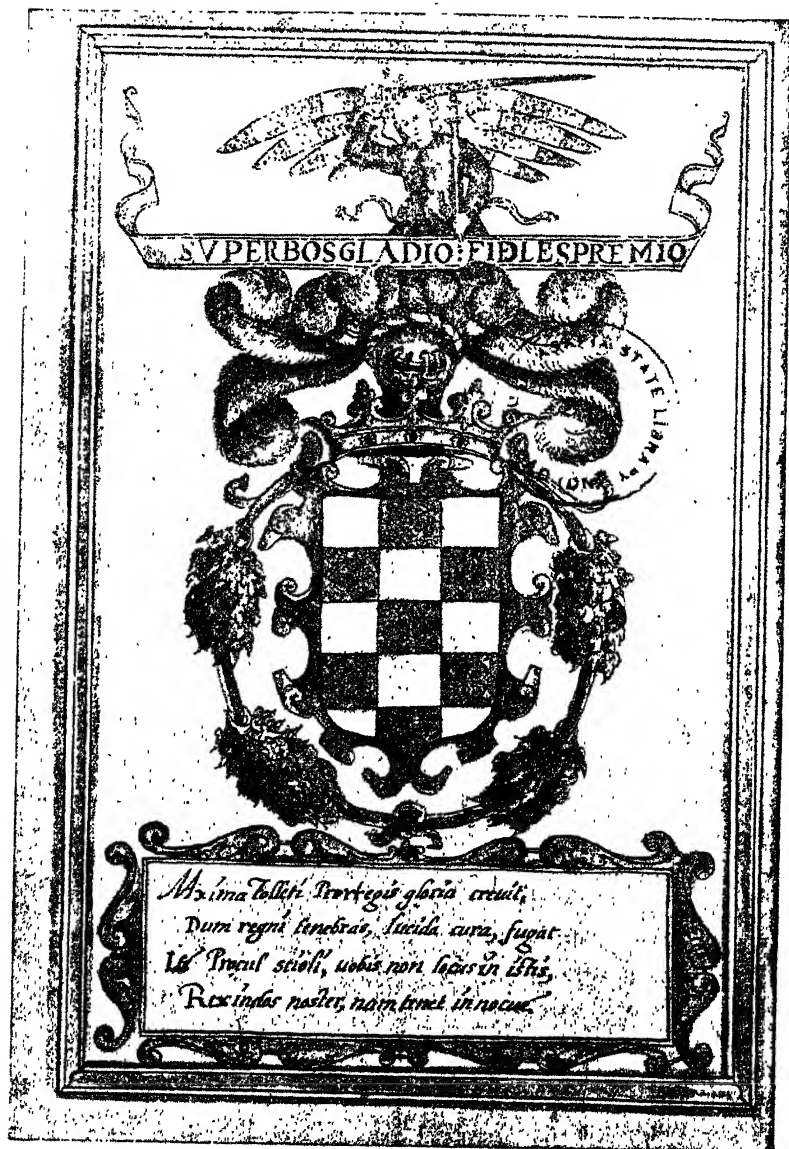 SVPERBOS GLADIO: FIDLES PREMIO
STATE LIBRARY
Mxima Tolleti Prortegis gloria creuit,
Dum regni tenebras, lucida cura, fugat
Procul scioli, uobis non locus in istis,
Rex indos noster, nam tenet innocue